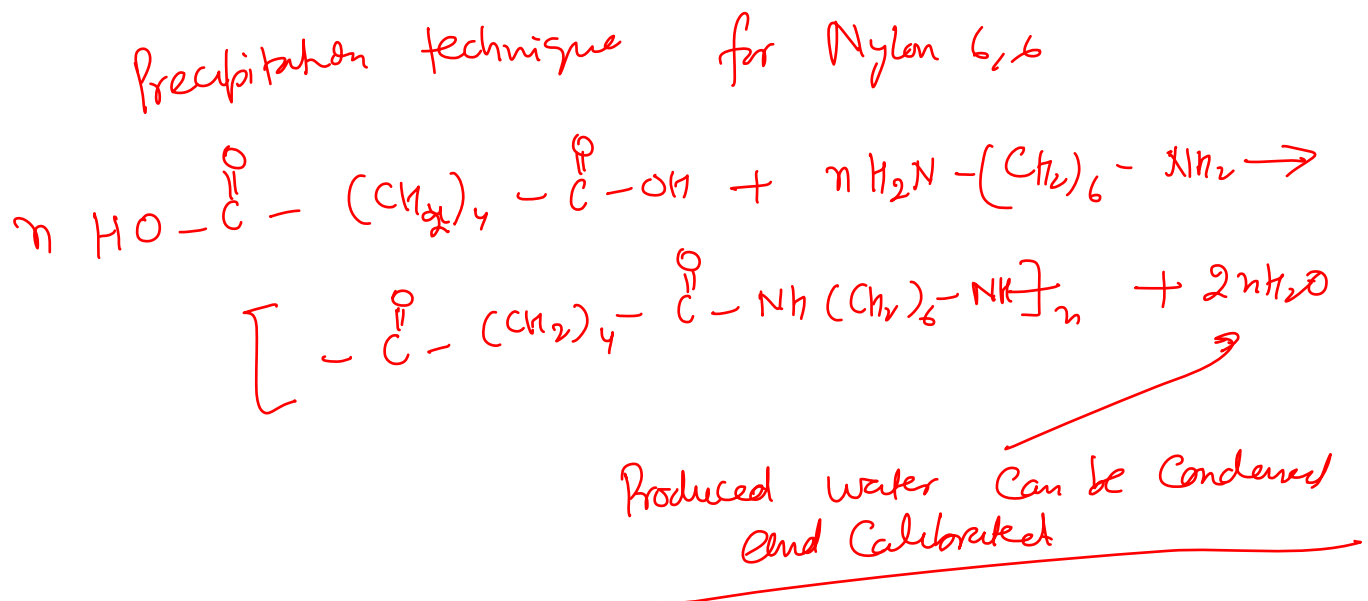 Precipitation technique for Nylon 6,6
n HO-C(=O)-(CH2)4-C(=O)-OH + n H2N-(CH2)6-NH2 →
[-C(=O)-(CH2)4-C(=O)-Nh(CH2)6-NH]n + 2nH2O
Produced water can be condensed
and Calibrated